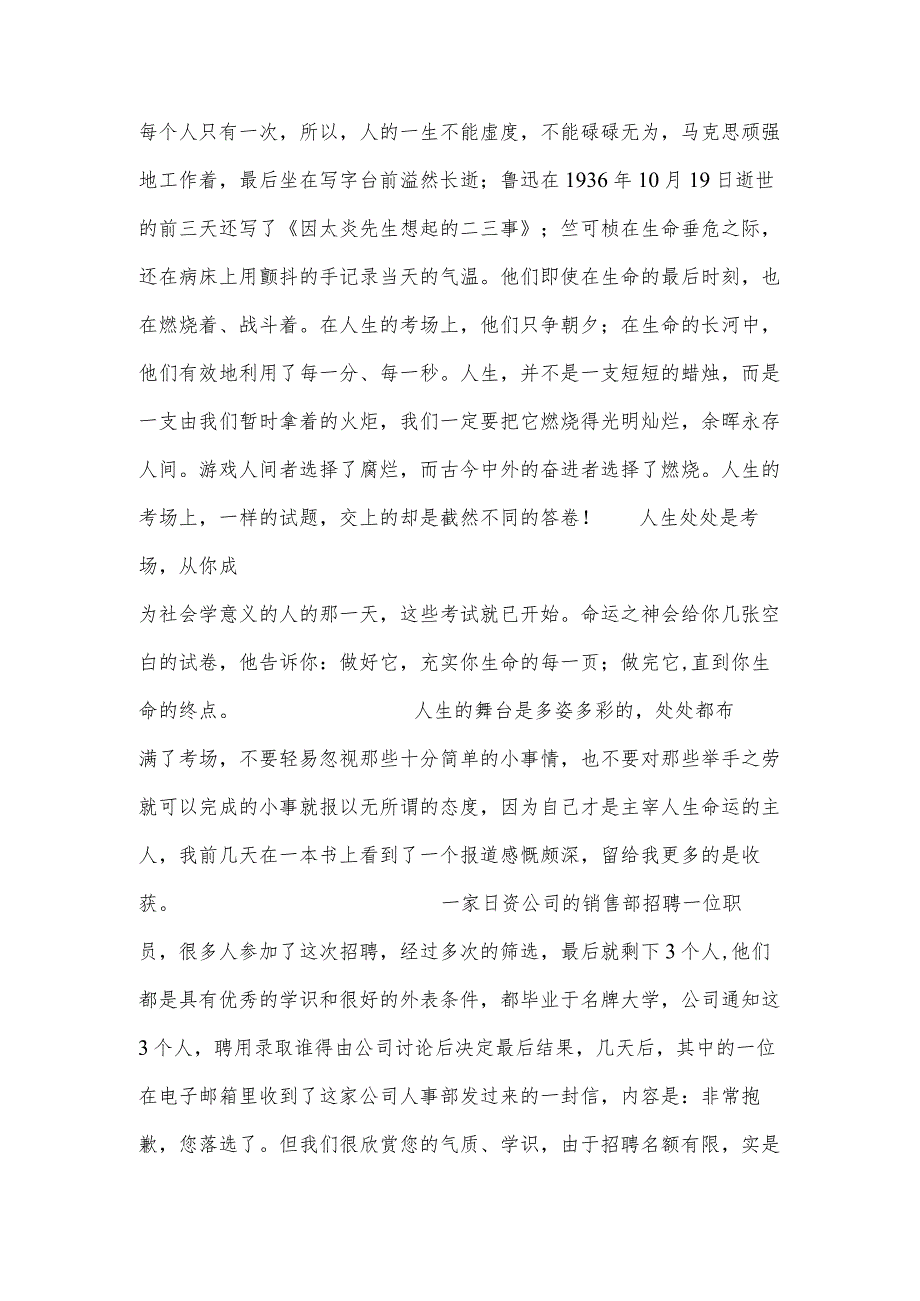 每个人只有一次，所以，人的一生不能虚度，不能碌碌无为，马克思顽强
地工作着，最后坐在写字台前溢然长逝；鲁迅在 1936 年 10 月 19 日逝世
的前三天还写了《因太炎先生想起的二三事》；竺可桢在生命垂危之际，
还在病床上用颤抖的手记录当天的气温。他们即使在生命的最后时刻，也
在燃烧着、战斗着。在人生的考场上，他们只争朝夕；在生命的长河中，
他们有效地利用了每一分、每一秒。人生，并不是一支短短的蜡烛，而是
一支由我们暂时拿着的火炬，我们一定要把它燃烧得光明灿烂，余晖永存
人间。游戏人间者选择了腐烂，而古今中外的奋进者选择了燃烧。人生的
考场上，一样的试题，交上的却是截然不同的答卷！ 人生处处是考
场，从你成
为社会学意义的人的那一天，这些考试就已开始。命运之神会给你几张空
白的试卷，他告诉你：做好它，充实你生命的每一页；做完它,直到你生
命的终点。 人生的舞台是多姿多彩的，处处都布
满了考场，不要轻易忽视那些十分简单的小事情，也不要对那些举手之劳
就可以完成的小事就报以无所谓的态度，因为自己才是主宰人生命运的主
人，我前几天在一本书上看到了一个报道感慨颇深，留给我更多的是收
获。 一家日资公司的销售部招聘一位职
员，很多人参加了这次招聘，经过多次的筛选，最后就剩下 3 个人,他们
都是具有优秀的学识和很好的外表条件，都毕业于名牌大学，公司通知这
3 个人，聘用录取谁得由公司讨论后决定最后结果，几天后，其中的一位
在电子邮箱里收到了这家公司人事部发过来的一封信，内容是：非常抱
歉，您落选了。但我们很欣赏您的气质、学识，由于招聘名额有限，实是